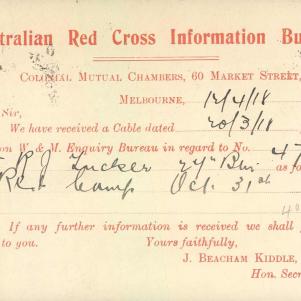 tralian Red Cross Information Bu
COLONIAL MUTUAL CHAMBERS, 60 MARKET STREET,
MELBOURNE, 12/4/18
Sir,
We have received a Cable dated 20/3/18
on W. & M. Enquiry Bureau in regard to No. 47
R J Tucker 24th Btn as fo
Rest Camp Oct. 31st
If any further information is received we shall
to you. Yours faithfully,
J. BEACHAM KIDDLE,
Hon. Secre